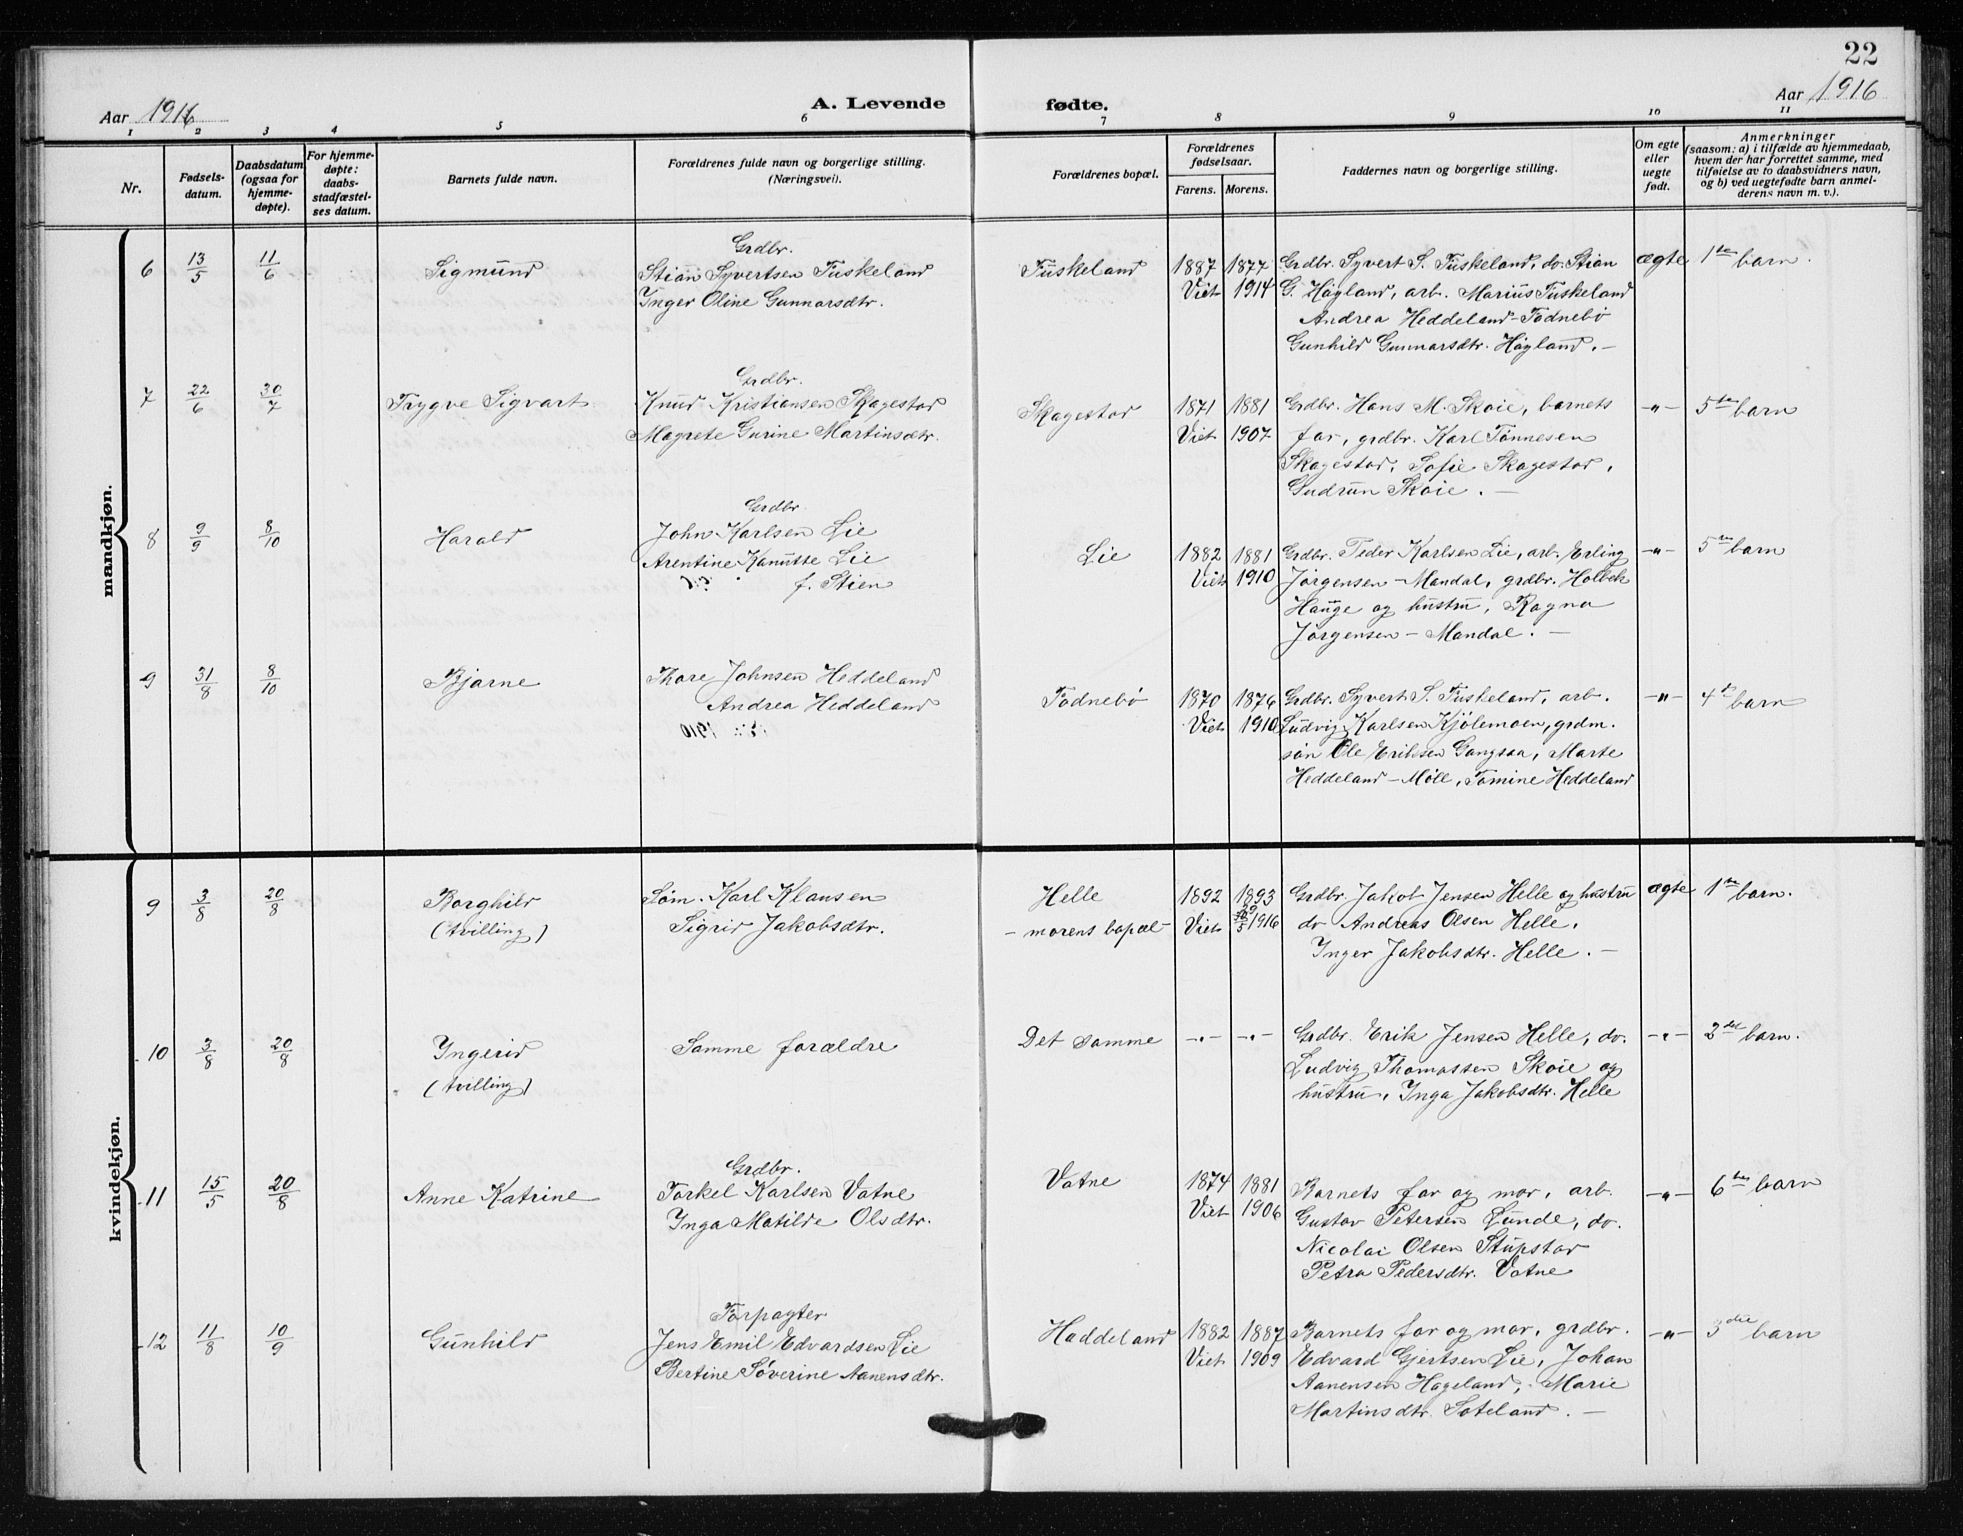 22
Aar 1916 A. Levende fødte. Aar 1916
1 2 3 4 5 6 7 8 9 10 11
Nr.
Fødsels-
datum.
Daabsdatum
(ogsaa for
hjemme-
døpte).
For hjemme-
døpte:
daabs-
stadfæstel-
ses datum.
Barnets fulde navn.
Forældrenes fulde navn og borgerlige stilling.
(Næringsvei).
Forældrenes bopæl.
Forældrenes
fødselsaar.
Farens. Morens.
Faddernes navn og borgerlige stilling.
Om egte
eller
uegte
født.
Anmerkninger
(saasom: a) i tilfælde av hjemmedaab,
hvem der har forrettet samme, med
tilføielse av to daabsvidners navn,
og b) ved uegtefødte barn anmel-
derens navn m. v.).
mandkjøn.
6 13/5 11/6 Sigmund
Grdbr.
Stian Syvertsen Tuskeland
Inger Oline Gunnarsdtr.
Tuskeland
1887 1877
Viet 1914
Grdbr. Syvert S. Tuskeland, do. Stian
G. Høgland, arb. Marius Tuskeland
Andrea Heddeland-Todnebø
Gunhild Gunnarsdtr. Høgland. –
ægte 1ste barn.
7 22/6 30/7 Trygve Sigvart
Grdbr.
Knud Kristiansen Skagestad
Magrete Gurine Martinsdtr.
Skagestad
1871 1881
Viet 1907
Grdbr. Hans M. Skoie, barnets
far, grdbr. Karl Tønnesen
Skagestad, Sofie Skagestad,
Gudrun Skoie. –
–"– 5te barn
8 9/9 8/10 Harald
Grdbr.
John Karlsen Lie
Arentine Kanutte Lie
f. Stien
Lie
1882 1881
Viet 1910
Grdbr. Peder Karlsen Lie, arb. Erling
Jørgensen – Mandal, grdbr. Holbek
Hauge og hustru, Ragna
Jørgensen – Mandal. –
–"– 5te barn
9 31/8 8/10 Bjarne
Thore Johnsen Heddeland
Andrea Heddeland
Todnebø
1870 1876
Viet 1910
Grdbr. Syvert S. Tuskeland, arb.
Ludvig Karlsen Kjølemoen, grdm.
søn Ole Eriksen Gangsaa, Marte
Heddeland – Møll, Tomine Heddeland
–"– 4de barn
kvindekjøn.
9 3/8 20/8 Borghild
(tvilling)
Søm. Karl Klausen
Sigrid Jakobsdtr.
Helle
– morens bopæl –
1892 1893
Viet 1916
Grdbr. Jakob Jensen Helle og hustru
do Andreas Olsen Helle.
Inger Jakobsdtr. Helle. –
ægte 1ste barn.
10 3/8 20/8 Ingerid
(tvilling)
Samme forældre
Det samme
–"– –"–
Grdbr. Erik Jensen Helle, do.
Ludvig Thomassen Skoie og
hustru, Inga Jakobsdtr. Helle
–"– 2det barn.
11 15/5 20/8 Anne Katrine
Grdbr.
Torkel Karlsen Vatne
Inga Matilde Olsdtr.
Vatne
1874 1881
Viet 1906
Barnets far og mor, arb.
Gustav Petersen Lunde, do.
Nicolai Olsen Stupstad
Petra Pedersdtr. Vatne
–"– 6te barn
12 11/8 10/9 Gunhild
Forpagter
Jens Emil Edvardsen Lie
Bertine Søverine Aanensdtr.
Haddeland
1882 1887
Viet 1909
Barnets far og mor, grdbr.
Edvard Gjertsen Lie, Johan
Aanensen Hageland, Marie
Martinsdtr. Soteland. –
–"– 3die barn